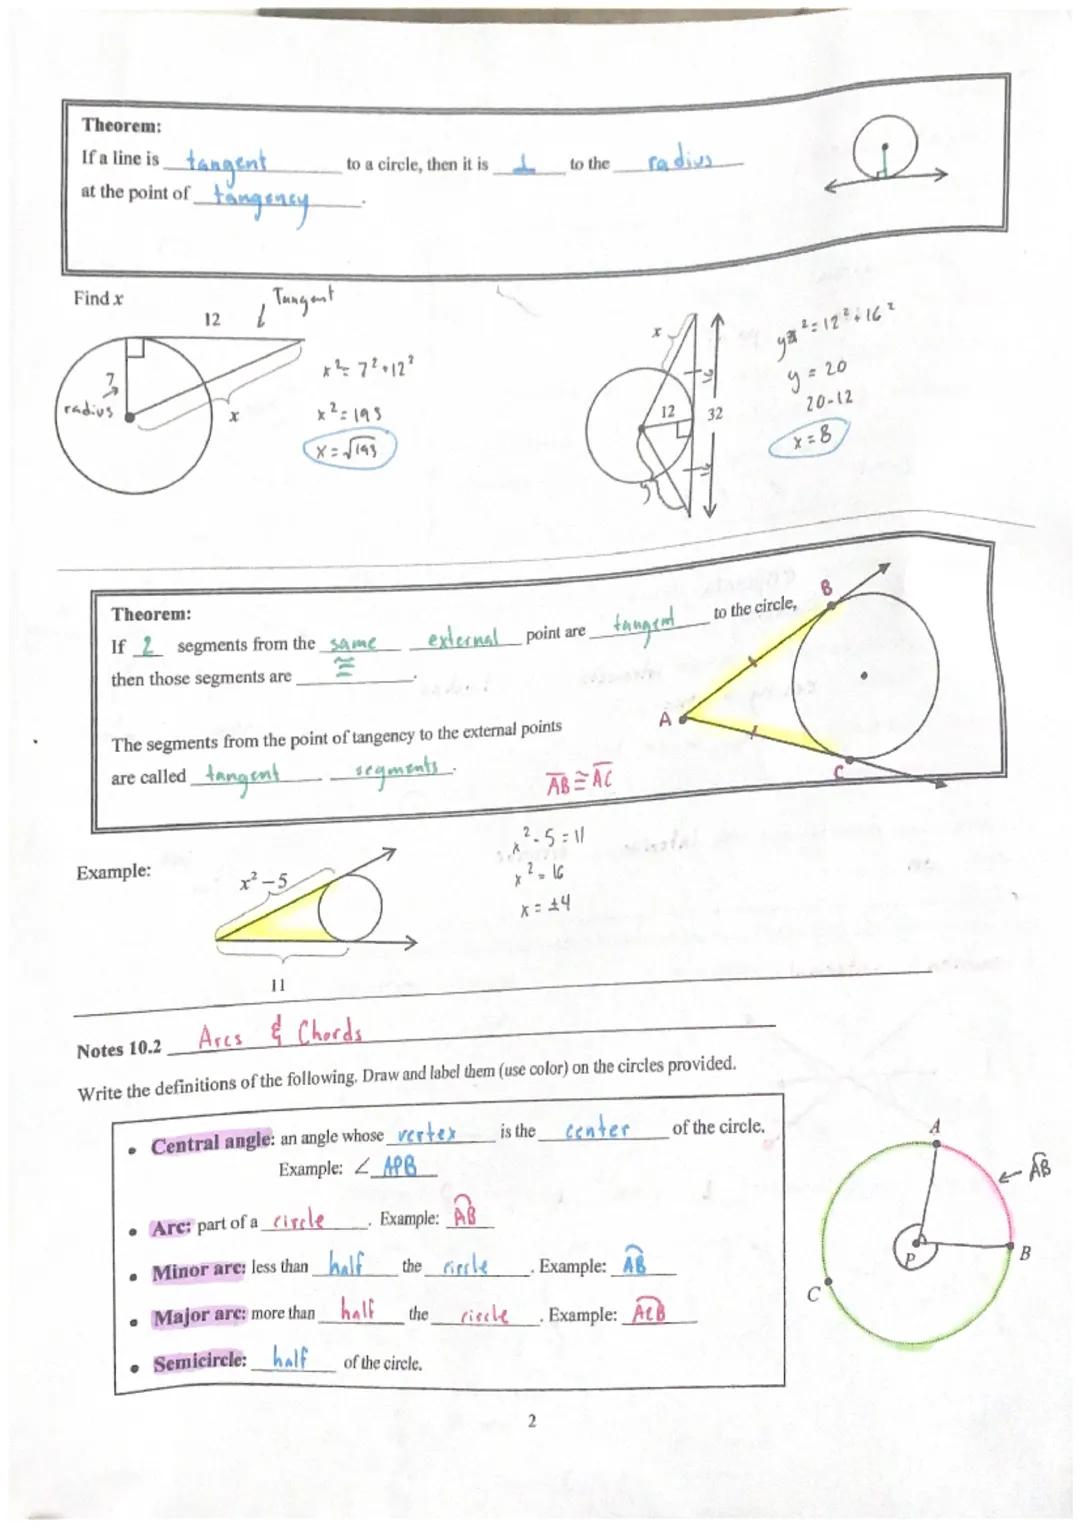 Theorem:
If a line is tangent to a circle, then it is ⊥ to the radius
at the point of tangency.
Find x
12
Tangent
7
radius
x
x² = 7² + 12²
x² = 193
x = √193
x
12
32
16
16
y
y² = 12² + 16²
y = 20
20-12
x = 8
Theorem:
If 2 segments from the same external point are tangent to the circle,
then those segments are ≅.
The segments from the point of tangency to the external points
are called tangent segments.
AB ≅ AC
A
B
C
Example:
x² – 5
11
x² - 5 = 11
x² = 16
x = ±4
Notes 10.2 Arcs & Chords
Write the definitions of the following. Draw and label them (use color) on the circles provided.
• Central angle: an angle whose vertex is the center of the circle.
Example: ∠ APB
• Arc: part of a circle. Example: AB
• Minor arc: less than half the circle. Example: AB
• Major arc: more than half the circle. Example: ACB
• Semicircle: half of the circle.
A
AB
P
B
C
2